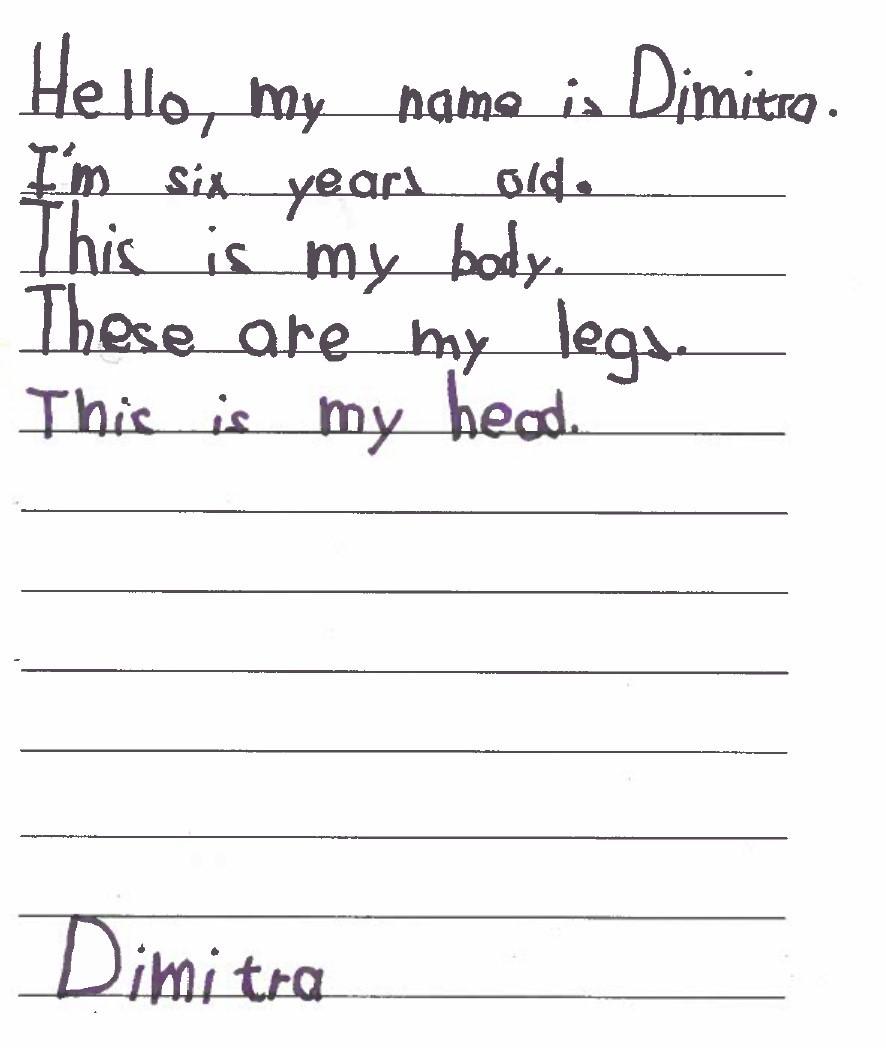 Hello, my name is Dimitra.
I'm six years old.
This is my body.
These are my legs.
This is my head.
Dimitra